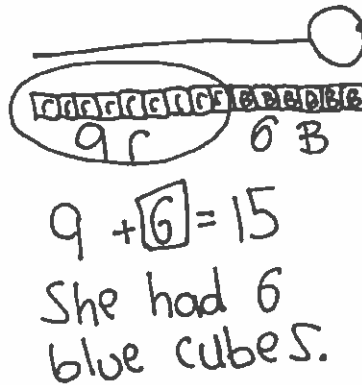 r r r r r r r r r B B B B B B
9 r 6 B
9 + 6 = 15
She had 6
blue cubes.